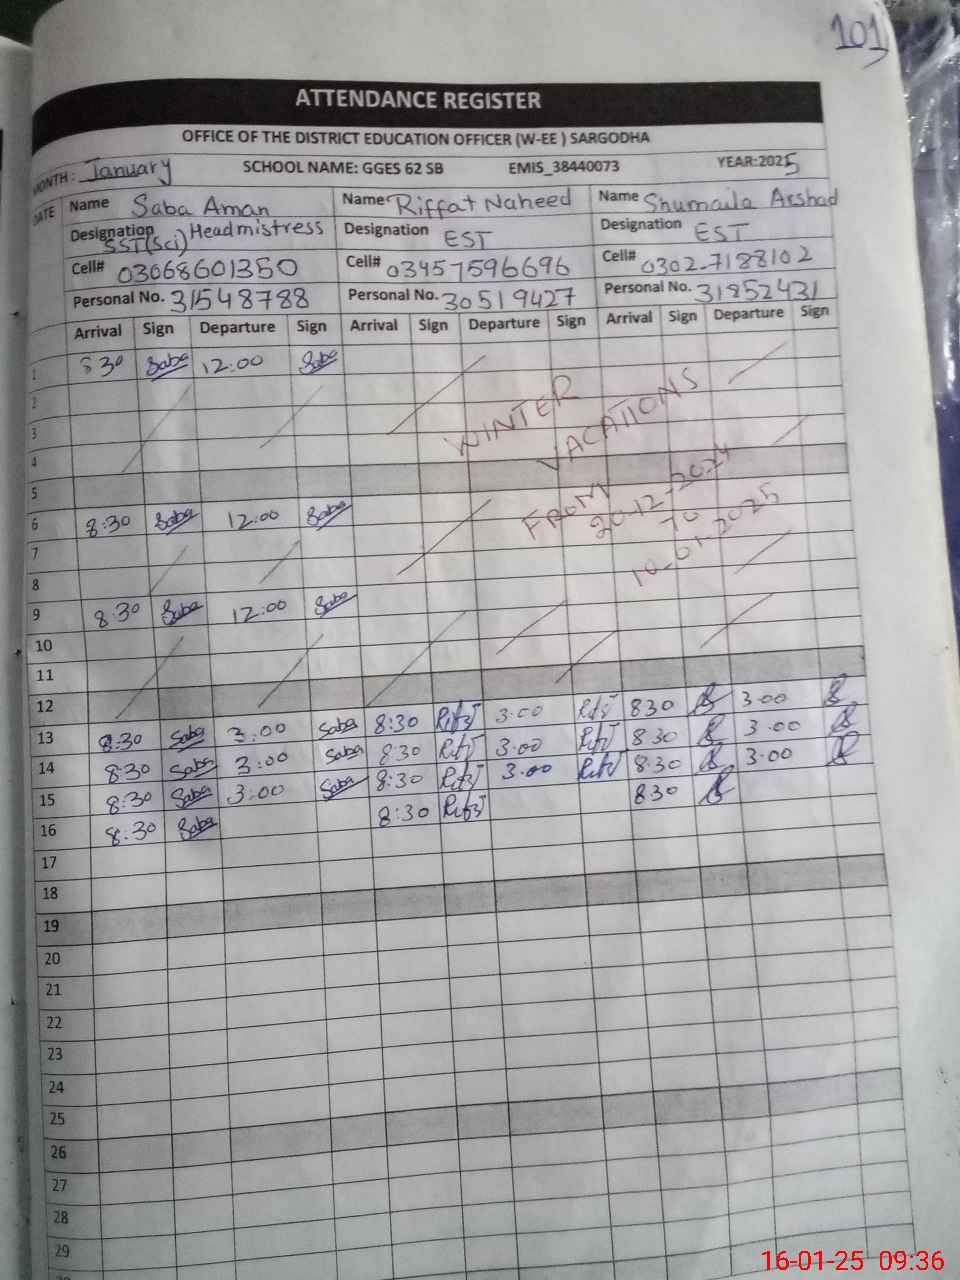 101
ATTENDANCE REGISTER
OFFICE OF THE DISTRICT EDUCATION OFFICER (W-EE ) SARGODHA
MONTH : January SCHOOL NAME: GGES 62 SB EMIS_38440073 YEAR:2025
DATE Name Saba Aman Name Riffat Naheed Name Shumaila Arshad
Designation SST(sci) Headmistress Designation EST Designation EST
Cell# 03068601350 Cell# 03457596696 Cell# 0302-7188102
Personal No. 31548788 Personal No. 30519427 Personal No. 31852431
Arrival Sign Departure Sign Arrival Sign Departure Sign Arrival Sign Departure Sign
1 8 30 Saba 12:00 Saba
2
3
4
5
WINTER
VACATIONS
FROM
20-12-2024
TO
10-01-2025
6 8:30 Saba 12:00 Saba
7
8
9 8:30 Saba 12:00 Saba
10
11
12
13 8:30 Saba 3:00 Saba 8:30 3:00 830 3.00
14 8:30 Saba 3:00 Saba 8:30 3.00 8 30 3.00
15 8:30 Saba 3:00 Saba 8:30 3.00 8.30 3.00
16 8:30 Saba 8:30 830
17
18
19
20
21
22
23
24
25
26
27
28
29
16-01-25 09:36